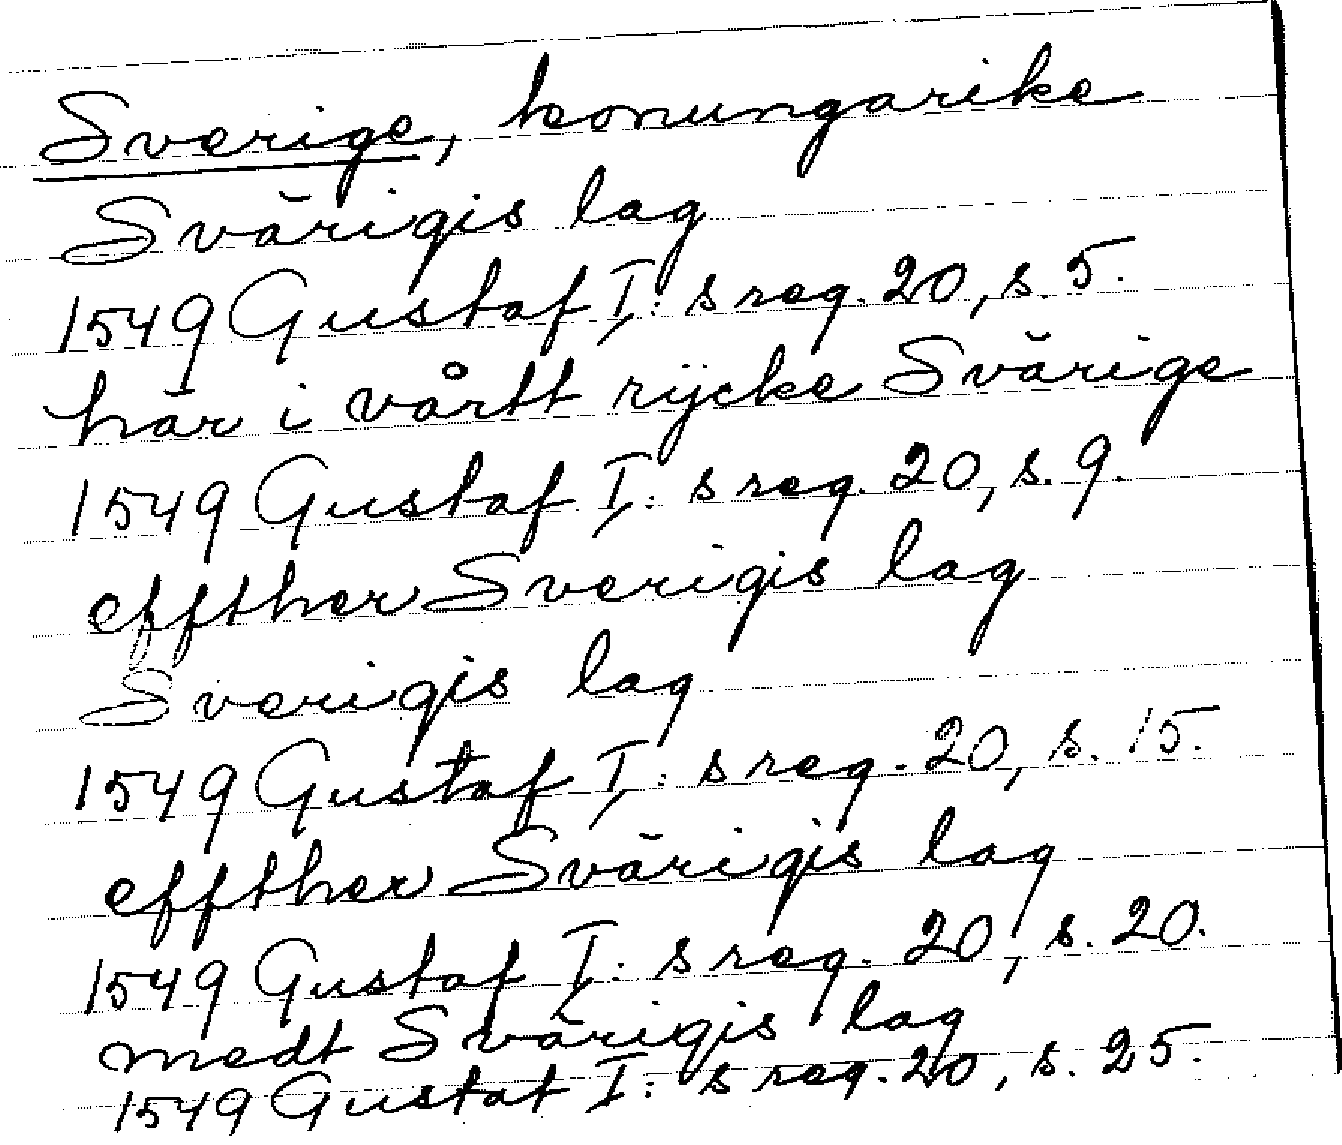 Sverige, konungarike
Svärigis lag
1549 Gustaf I:s reg. 20, s. 5.
här i vårtt rijcke Svärige
1549 Gustaf I:s reg. 20, s. 9.
effther Sverigis lag
Sverigis lag
1549 Gustaf I:s reg. 20, s. 15.
effther Svärigis lag
1549 Gustaf I:s reg. 20, s. 20.
medt Svärigis lag
1549 Gustaf I:s reg. 20, s. 25.